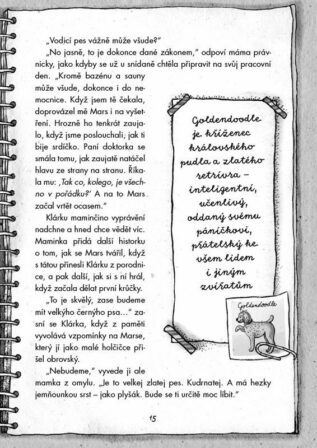 „Vodicí pes vážně může všude?“
„No jasně, to je dokonce dané zákonem,“ odpoví máma práv-
nicky, jako kdyby se už u snídaně chtěla připravit na svůj pracovní
den. „Kromě bazénu a sauny
může všude, dokonce i do ne-
mocnice. Když jsem tě čekala,
doprovázel mě Mars i na vyšet-
ření. Hrozně ho tenkrát zauja-
lo, když jsme poslouchali, jak ti
bije srdíčko. Paní doktorka se
smála tomu, jak zaujatě natáčel
hlavu ze strany na stranu. Říka-
la mu: ‚Tak co, kolego, je všech-
no v pořádku?‘ A na to Mars
začal vrtět ocasem.“
Klárku maminčino vyprávění
nadchne a hned chce vědět víc.
Maminka přidá další historku
o tom, jak se Mars tvářil, když
s tátou přinesli Klárku z porodni-
ce, a pak další, jak si s ní hrál,
když začala dělat první krůčky.
„To je skvělý, zase budeme
mít velkýho černýho psa...“ za-
sní se Klárka, když z paměti
vyvolává vzpomínky na Marse,
který jí jako malé holčičce při-
šel obrovský.
„Nebudeme,“ vyvede ji ale
mamka z omylu. „Je to velkej zlatej pes. Kudrnatej. A má hezky
jemňounkou srst – jako plyšák. Bude se ti určitě moc líbit.“
Goldendoodle
je kříženec
královského
pudla a zlatého
retrívra –
inteligentní,
učenlivý,
oddaný svému
páníčkovi,
přátelský ke
všem lidem
i jiným
zvířatům
Goldendoodle
15